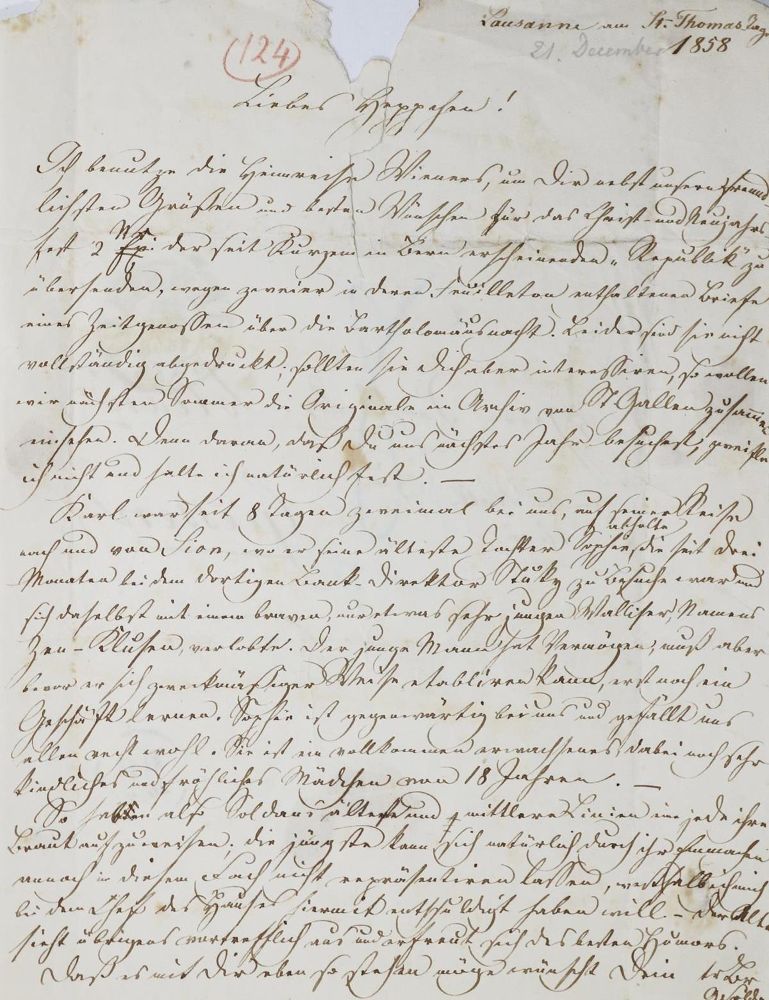 Lausanne am St. Thomas Tage
21. December 1858
124
Liebes Heppchen!
Ich benutze die Heimreise Wieners, um Dir nebst unsern freund
lichsten Grüßen und besten Wünschen für das Christ- und Neujahrs-
fest 2 der seit Kurzem in Bern erscheinenden „Republik" zu
übersenden, wegen zweier in deren Feuilleton enthaltenen Briefe
eines Zeitgenossen über die Bartholomäusnacht. Leider sind sie nicht
vollständig abgedruckt; sollten sie Dich aber interessiren, so wollen
wir nächsten Sommer die Originale im Archiv von St Gallen zusammen
einsehen. Denn daran, daß Du uns nächstes Jahr besuchest, zweifle
ich nicht und halte ich natürlich fest. —
Karl war seit 8 Tagen zweimal bei uns, auf seiner Reise
nach und von Sion, wo er seine älteste Tochter Sophie abholte, die seit drei
Monaten bei dem dortigen Bank-Direktor Stuky zu Besuche war und
sich daselbst mit einem braven, nur etwas sehr jungen Walliser, Namens
Zen-Klusen, verlobte. Der junge Mann hat Vermögen, muß aber
bevor er sich zweckmäßiger Weise etabliren kann, erst noch ein
Geschäft lernen. Sophie ist gegenwärtig bei uns und gefällt uns
allen recht wohl. Sie ist ein vollkommen erwachsenes, dabei noch sehr
kindliches und fröhliches Mädchen von 18 Jahren. —
So haben also Soldans ältere und mittlere Linien eine jede ihre
Braut aufzuweisen; die jüngste kann sich natürlich durch ihr
annoch in diesem Fach nicht repräsentiren lassen, weßhalb ich mich
bei dem Chef des Hauses hiermit entschuldigt haben will. — Der Alte
sieht übrigens vortrefflich aus und erfreut sich des besten Humors.
Daß es mit Dir eben so stehen möge wünscht Dein tr Br